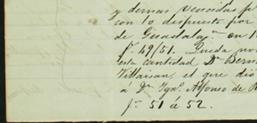 y demas recoridas p
con lo dispuesto por
de Guadalaja. en 1
fs. 49/51. Queda no
esta cantidad, Dn. Bern
Villarian, el que dio
á Dn. Ygno. Alfonso de
fs. 51 á 52.